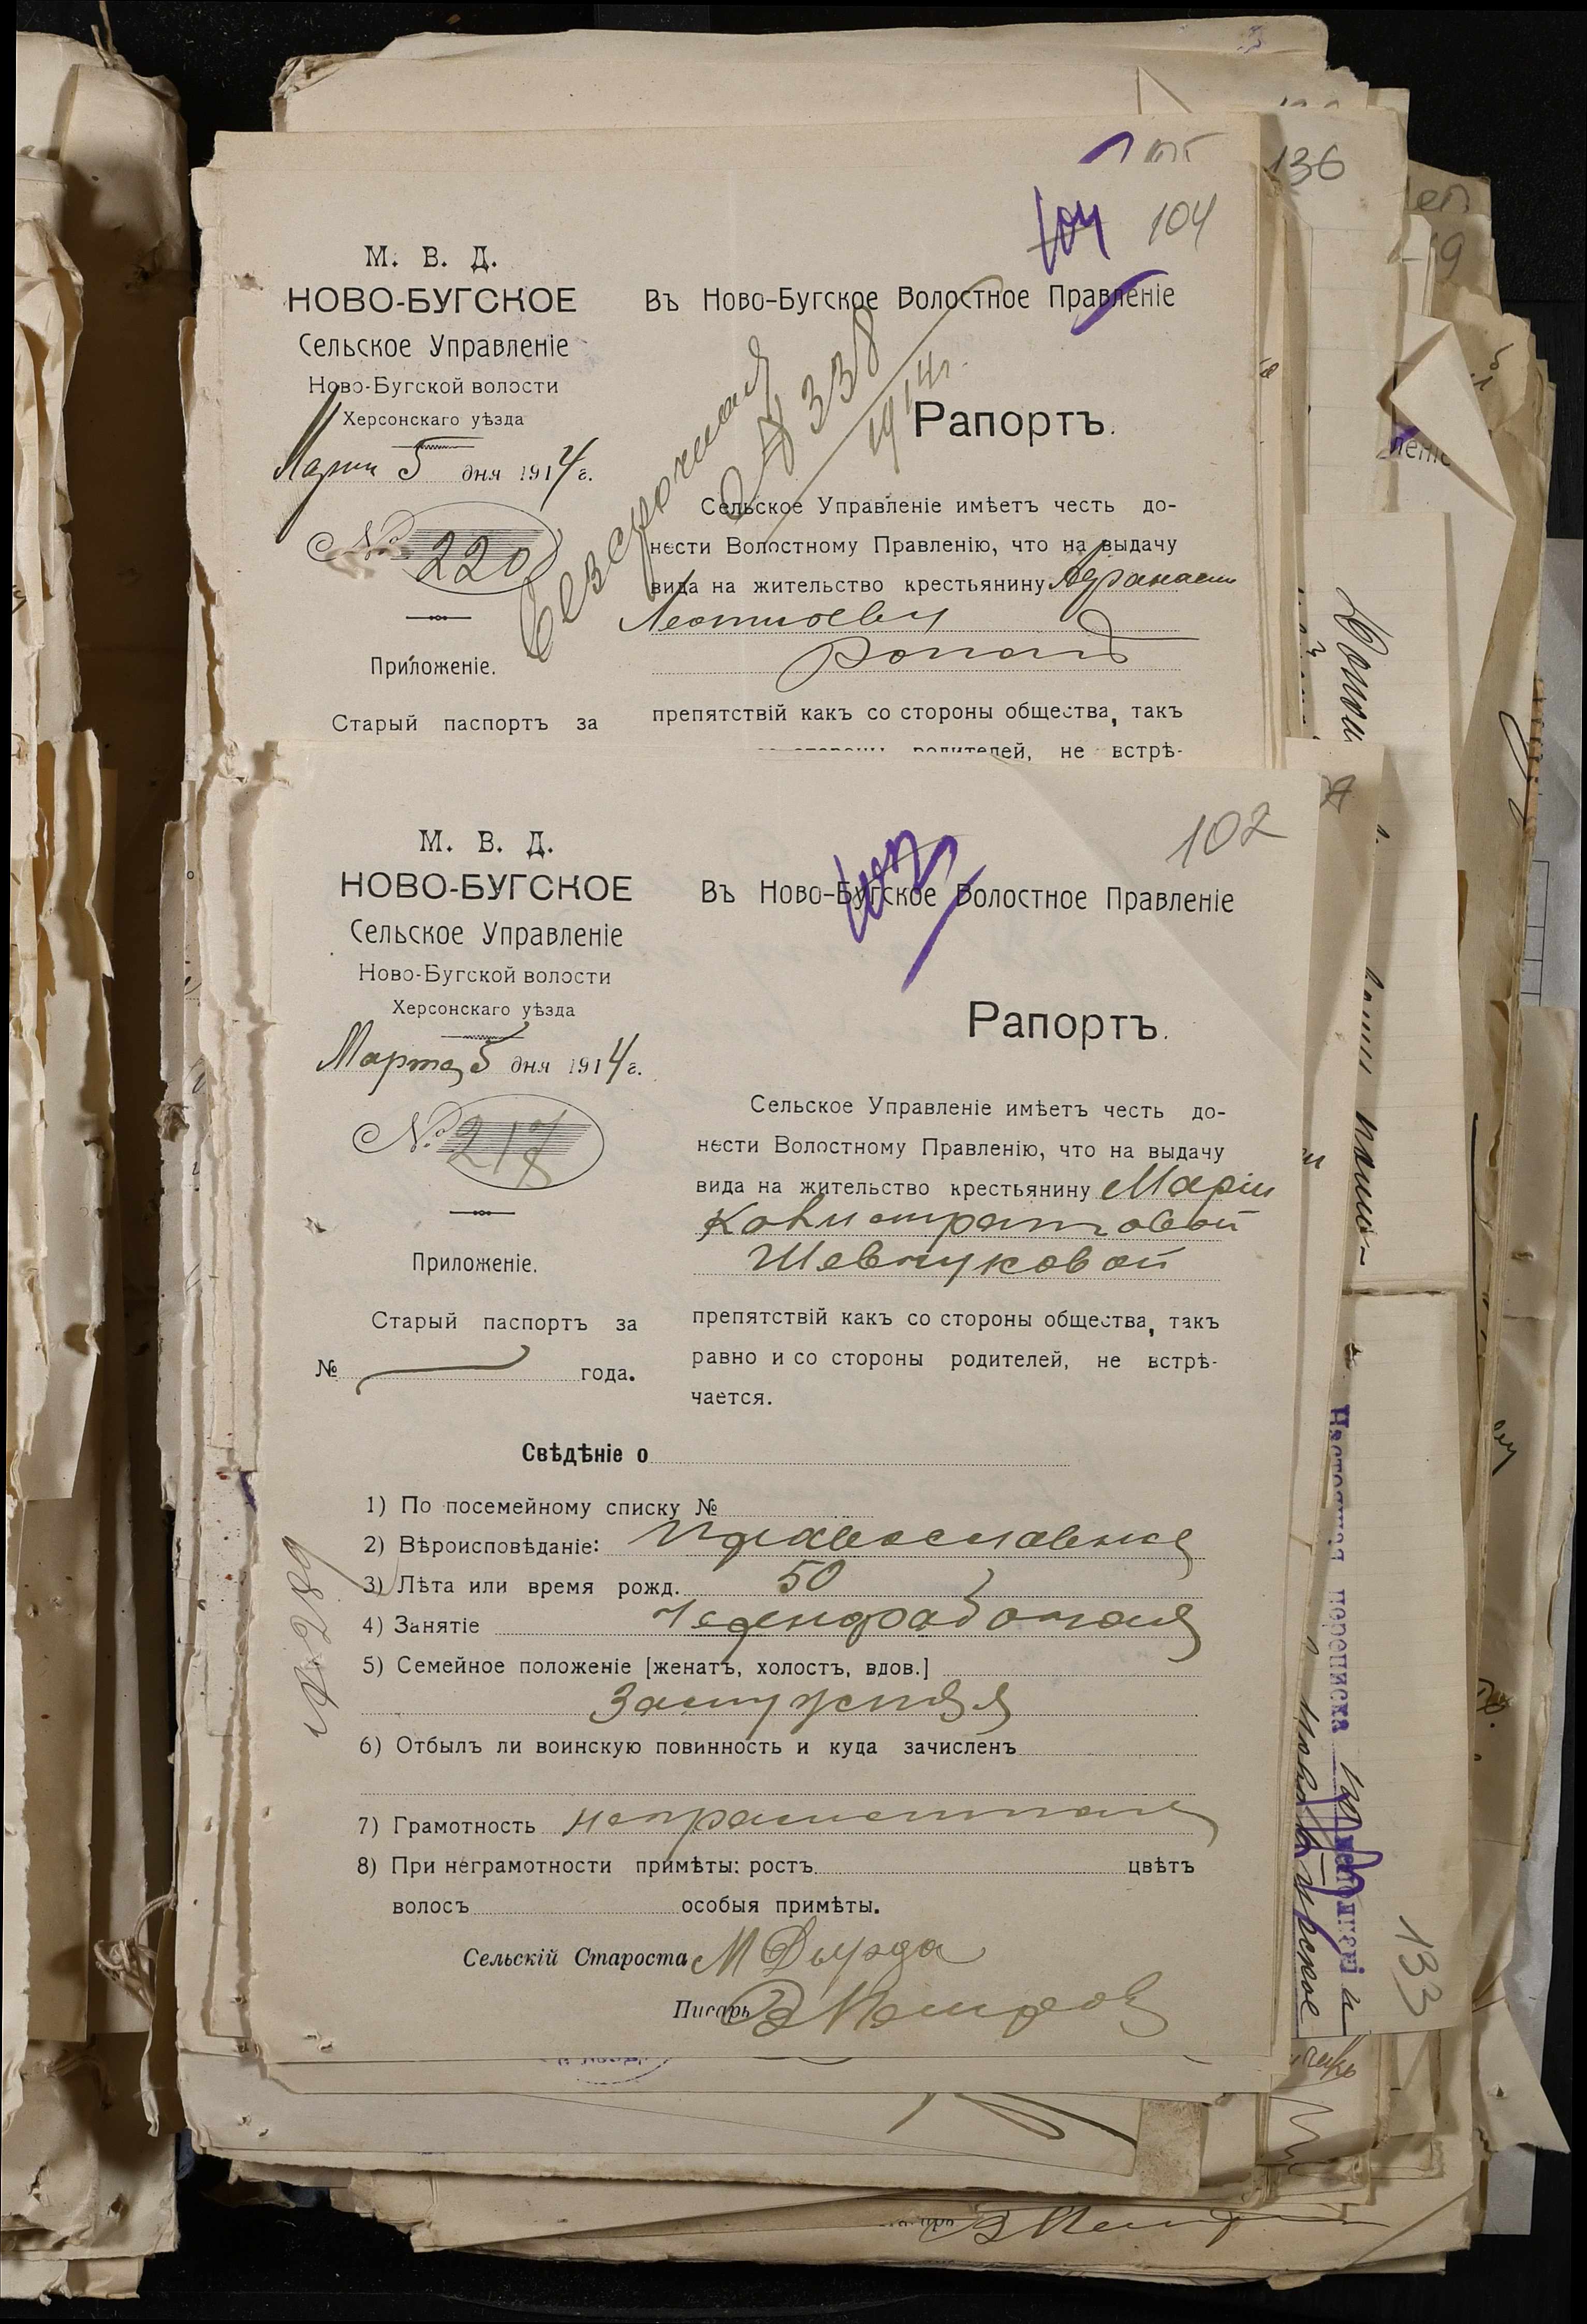 136
104
104
М. В. Д.
НОВО-БУГСКОЕ
Сельское Управленіе
Ново-Бугской волости
Херсонскаго уѣзда
Марта 5 дня 1914 г.
№ 220
Приложеніе.
Старый паспортъ за
Въ Ново-Бугское Волостное Правленіе
Безсрочная
1914 г.
Рапортъ.
Сельское Управленіе имѣетъ честь до-
нести Волостному Правленію, что на выдачу
вида на жительство крестьянину Афанасію
Леонтіеву
препятствій какъ со стороны общества, такъ
стороны родителей, не встрѣ-
102
102
М. В. Д.
НОВО-БУГСКОЕ
Сельское Управленіе
Ново-Бугской волости
Херсонскаго уѣзда
Марта 5 дня 1914 г.
№ 217
Приложеніе.
Старый паспортъ за
№ года.
Въ Ново-Бугское Волостное Правленіе
Рапортъ.
Сельское Управленіе имѣетъ честь до-
нести Волостному Правленію, что на выдачу
вида на жительство крестьянину Маріи
Калистратовой
Шевчуковой
препятствій какъ со стороны общества, такъ
равно и со стороны родителей, не встрѣ-
чается.
Свѣдѣніе о
1) По посемейному списку №
2) Вѣроисповѣданіе: Православная
3) Лѣта или время рожд. 50
4) Занятіе Чернорабочая
5) Семейное положеніе [женатъ, холостъ, вдов.]
Замужняя
6) Отбылъ ли воинскую повинность и куда зачисленъ
7) Грамотность неграмотная
8) При неграмотности примѣты: ростъ цвѣтъ
волосъ особыя примѣты.
Сельскій Староста М Дырда
Писарь В Петров
Настоящая переписка
133